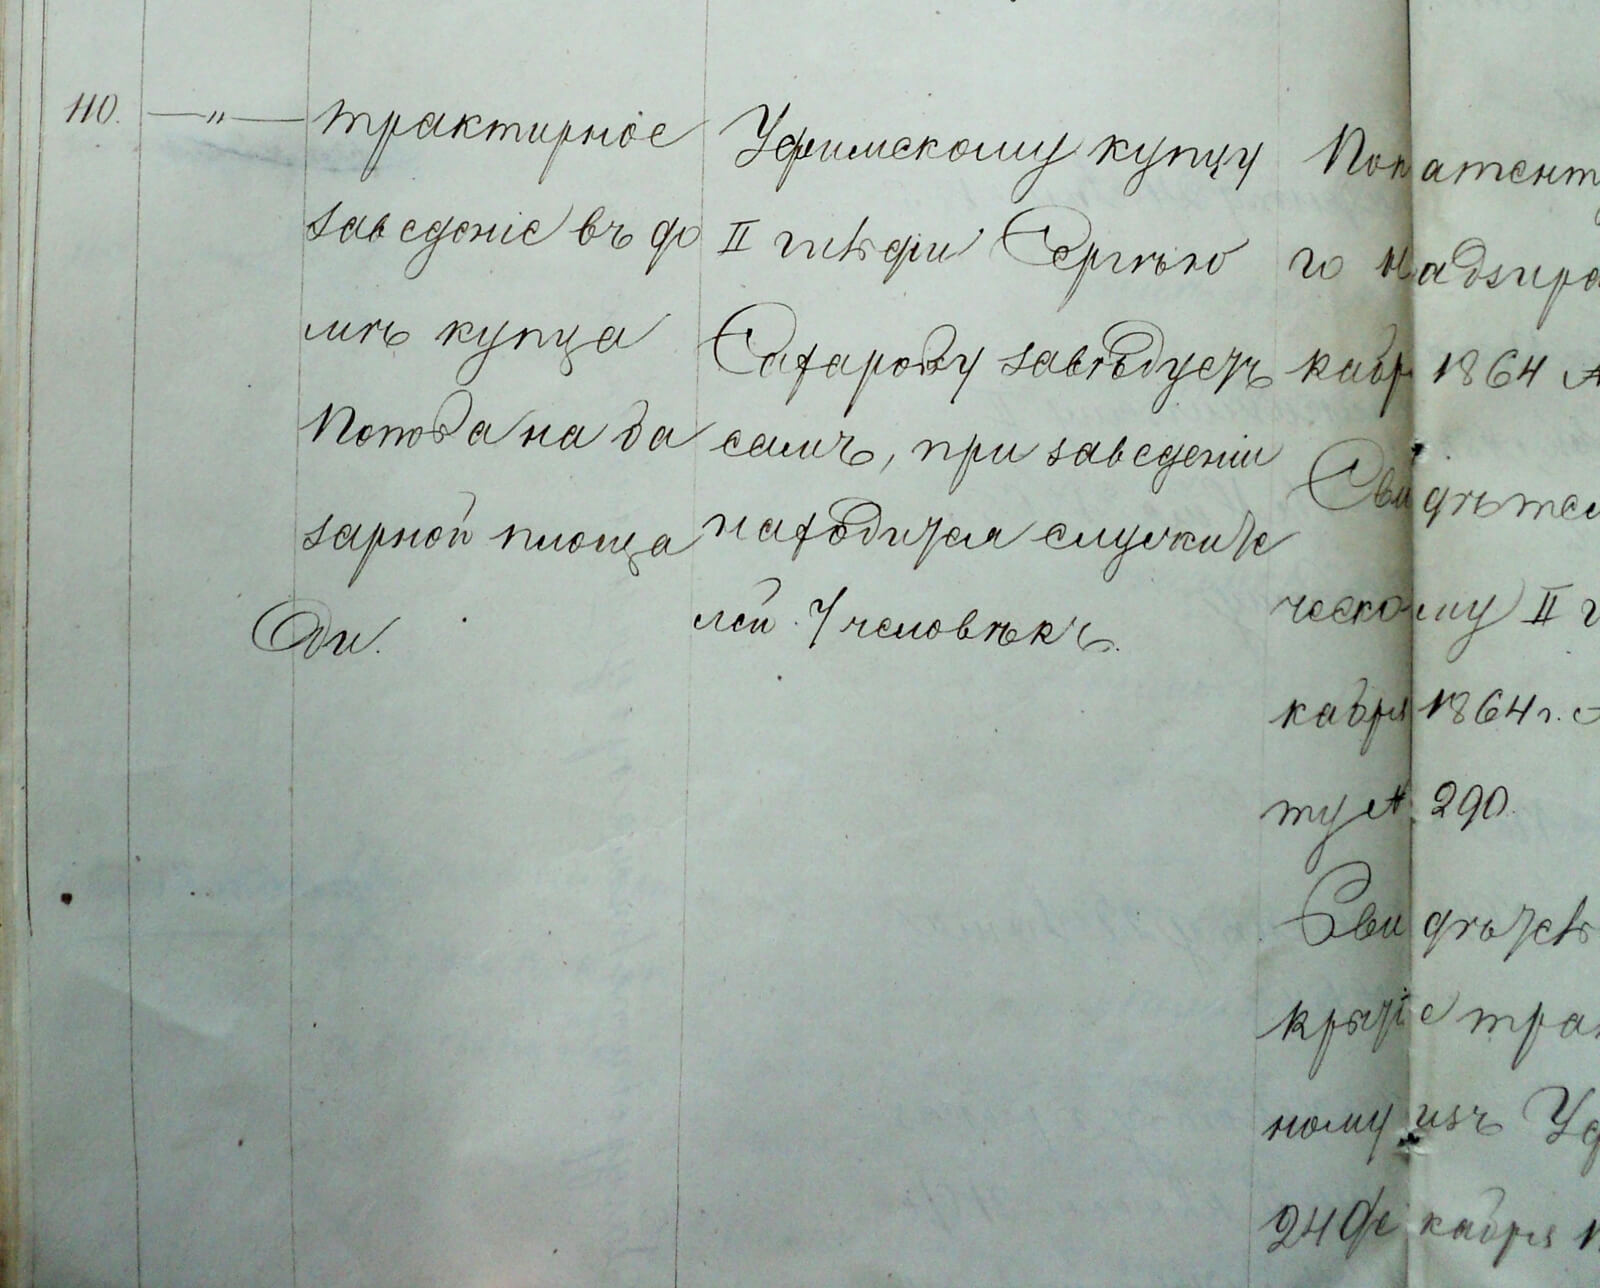 110. —„— трактирное
заведеніе въ до
мѣ купца
Попова на ба
зарной площа
ди.
Уфимскому купцу
II гильдіи Сергѣю
Сахарову завѣдуетъ
самъ, при заведеніи
находится служите
лей 7 человѣкъ.
По патент
го надзира
кабр 1864 №
Свидѣтел
ческому II г
кабря 1864 г. №
ту № 290.
Свидѣтель
крытіе трак
ному изъ Уф
24 декабря 1